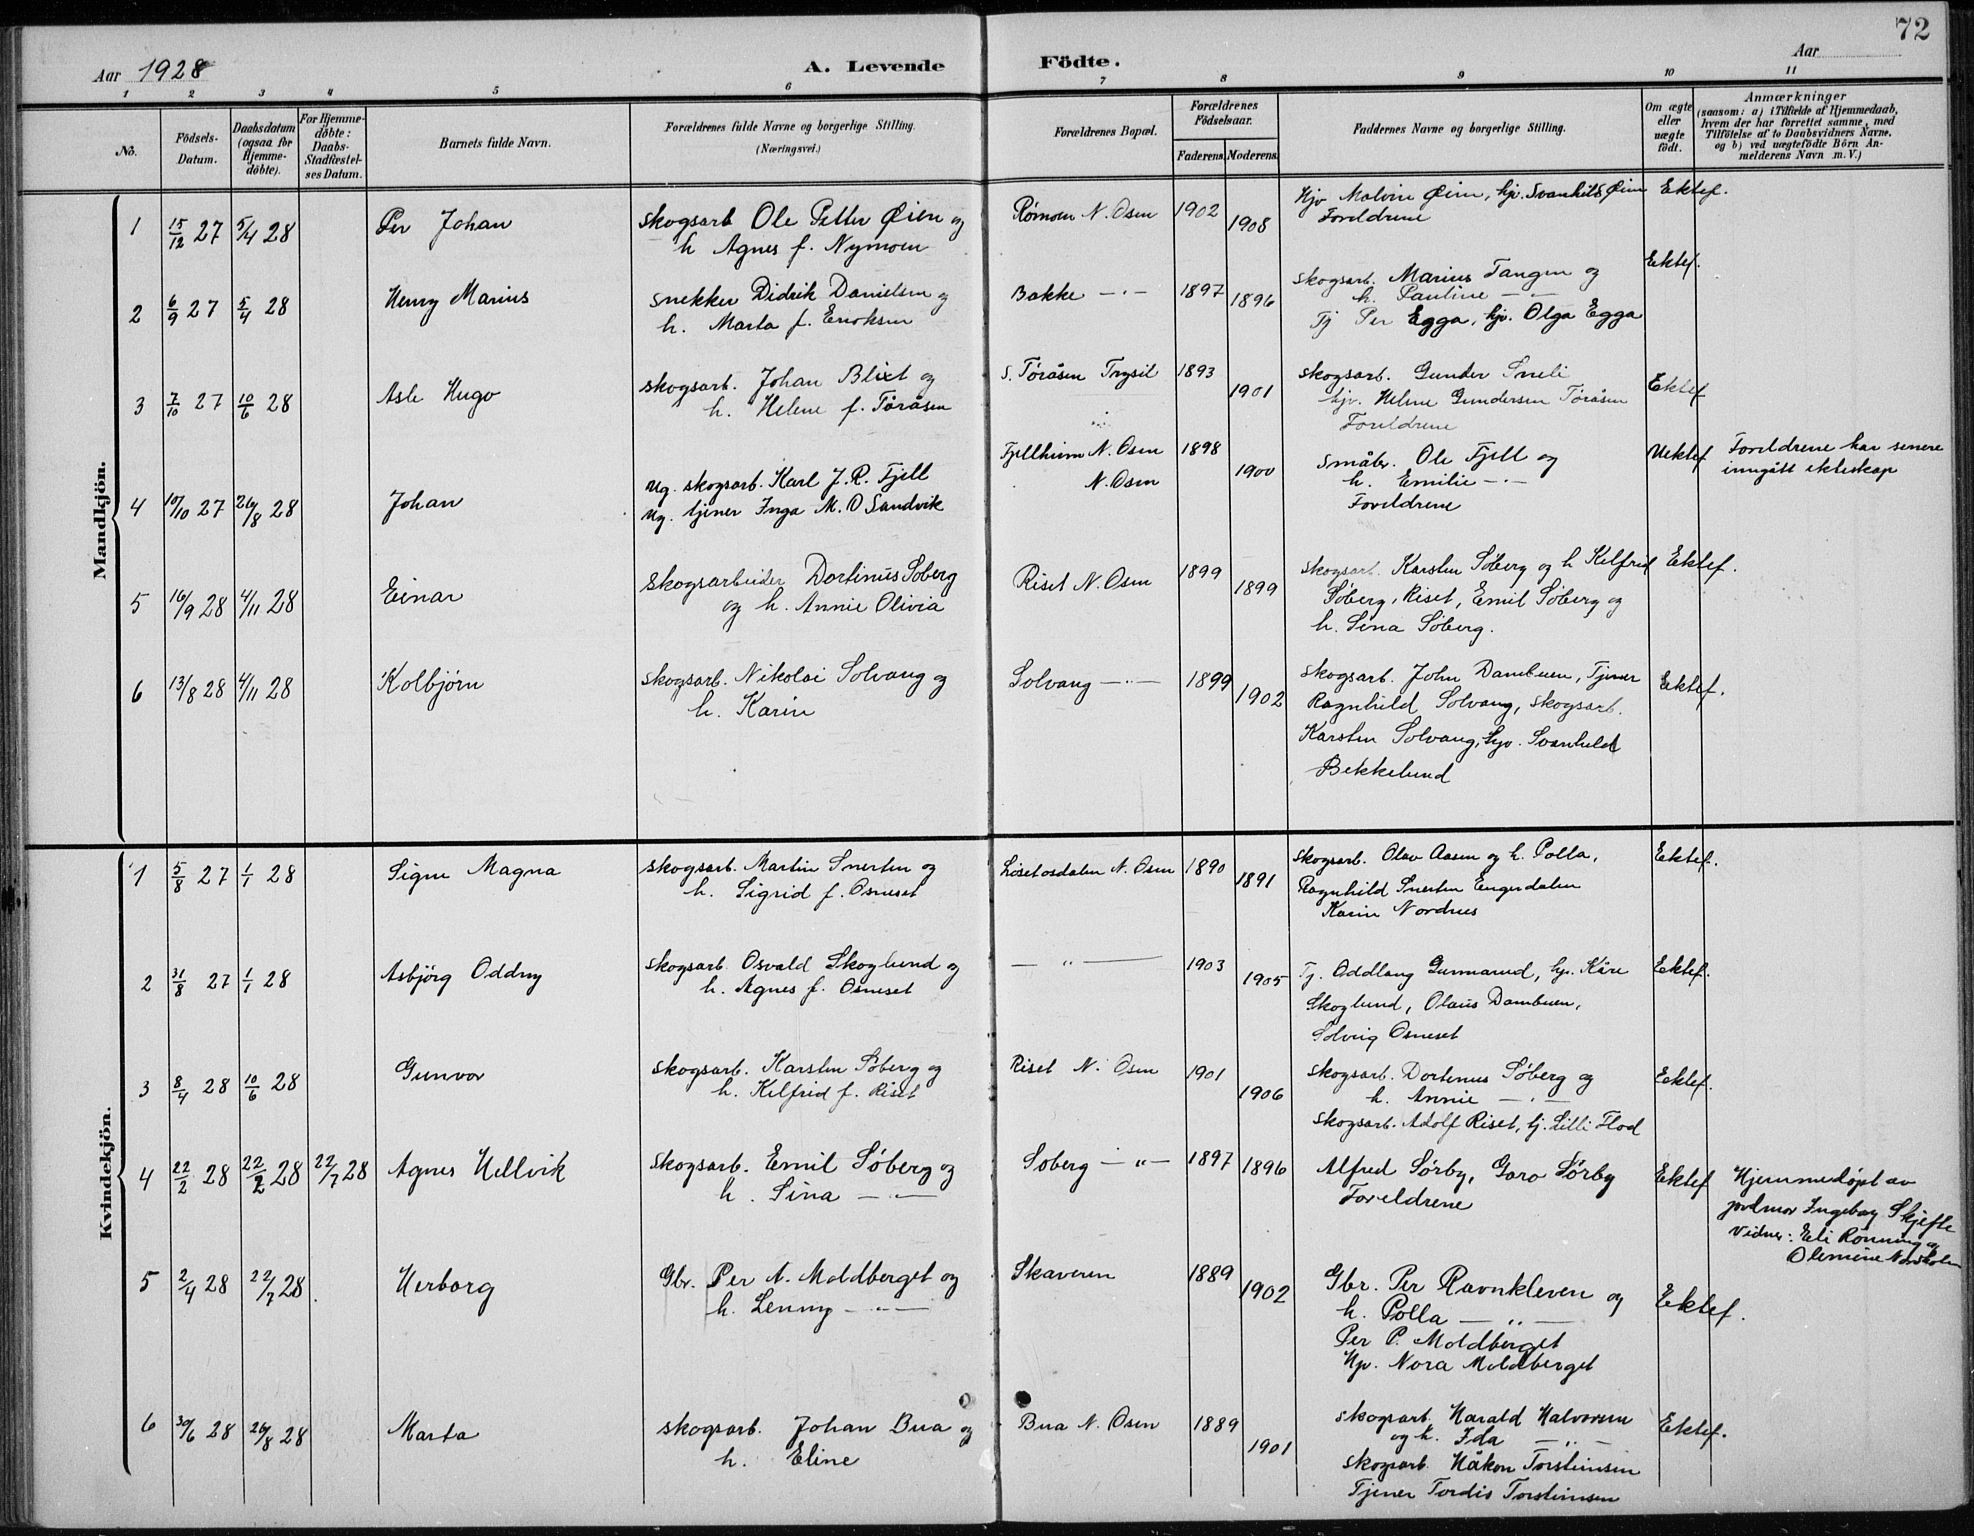 72
Aar 1928
A. Levende Födte.
Aar
1 2 3 4 5 6 7 8 9 10 11
No.
Födsels-
Datum.
Daabsdatum
(ogsaa for
Hjemme-
døbte).
For Hjemme-
døbte:
Daabs-
Stadfæstel-
ses Datum.
Barnets fulde Navn.
Forældrenes fulde Navne og borgerlige Stilling.
(Næringsvei.)
Forældrenes Bopæl.
Forældrenes
Födselsaar.
Faderens.
Moderens.
Faddernes Navne og borgerlige Stilling.
Om ægte
eller
uægte
födt.
Anmærkninger
(saasom: a) i Tilfælde af Hjemmedaab,
hvem der har forrettet samme, med
Tilföielse af to Daabsvidners Navne,
og b) ved uægtefödte Börn An-
melderens Navn m. V.)
Mandkjön.
1 15/12 27 5/4 28 Per Johan
skogsarb Ole Petter Øien og
h Agnes f. Nymoen
Rømoen N. Osen 1902 1908
Hjv Malvin Øien, hjv. Svanhild Øien
Foreldrene
Ektef.
2 6/9 27 5/4 28 Henry Marius
snekker Didrik Danielsen og
h. Marta f. Eriksen
Bakke — " — 1897 1896
skogsarb. Marius Tangen og
h. Pauline — " —
Tj Per Egga, hjv. Olga Egga
Ektef.
3 7/10 27 10/6 28 Asle Hugo
skogsarb. Johan Blixt og
h. Helene f. Töråsen
S. Töråsen Trysil 1893 1901
skogsarb. Gunder Sneli
hjv. Helene Gundersen Töråsen
Foreldrene
Ektef
4 10/10 27 26/8 28 Johan
ug. skogsarb. Karl J. R. Fjell
ug. tjener Inga M. O Sandvik
Fjellheim N. Osen
N. Osen
1898 1900
småbr. Ole Fjell og
h. Emilie — " —
Foreldrene
Uektef
Foreldrene har senere
inngått ekteskap
5 16/9 28 4/11 28 Einar
skogsarbeider Dortinus Söberg
og h. Annie Olivia
Riset N. Osen 1899 1899
skogsarb. Karsten Söberg og h Kilfrid
Söberg, Riset, Emil Söberg og
h. Sina Söberg.
Ektef.
6 13/8 28 4/11 28 Kolbjörn
skogsarb. Nikolai Solvang og
h. Karin
Solvang — " — 1899 1902
skogsarb. John Dambuen, Tjener
Ragnhild Solvang, skogsarb.
Karsten Solvang, hjv. Svanhild
Bekkelund
Ektef.
Kvindekjön.
1 5/8 27 1/1 28 Signe Magna
skogsarb. Martin Snerten og
h. Sigrid f. Osneset
Lösetosdalen N. Osen 1890 1891
skogsarb. Olav Aasen og h. Polla,
Ragnhild Snerten Engerdalen
Karin Nordnes
Ektef.
2 31/8 27 1/1 28 Asbjörg Oddny
skogsarb. Osvald Skoglund og
h. Agnes f. Osneset
— " — 1903 1905
Tj. Oddlaug Gunnarud, hj. Kåre
Skoglund, Olaus Dambuen,
Solveig Osneset
Ektef.
3 8/4 28 10/6 28 Gunvor
skogsarb. Karsten Söberg og
h. Kilfrid f. Riset
Riset N. Osen 1901 1906
skogsarb. Dortinus Söberg og
h. Annie — " —
skogsarb. Adolf Riset, tj. Lilli Flod
Ektef.
4 22/2 28 22/2 28 22/7 28 Agnes Hellvik
skogsarb. Emil Söberg og
h. Sina — " —
Soberg — " — 1897 1896
Alfred Sörby, Garo Sörby
Foreldrene
Ektef
Hjemmedöpt av
jordmor Ingeborg Skjefte
Vidner: Eli Rönning og
Olemine
5 2/4 28 22/7 28 Herborg
Gbr. Per A. Moldberget og
h. Lenny — " —
Skaveren 1889 1902
Gbr. Per Ravnkleven og
h. Polla — " —
Per P. Moldberget
Hjv. Nora Moldberget
Ektef.
6 30/6 28 26/8 28 Marta
skogsarb. Johan Bua og
h. Eline
Bua N. Osen 1889 1901
skogsarb. Harald Halvorsen
og h. Ida — " —
skogsarb. Håkon Torsteinsen
Tjener Tordis Torsteinsen
Ektef.